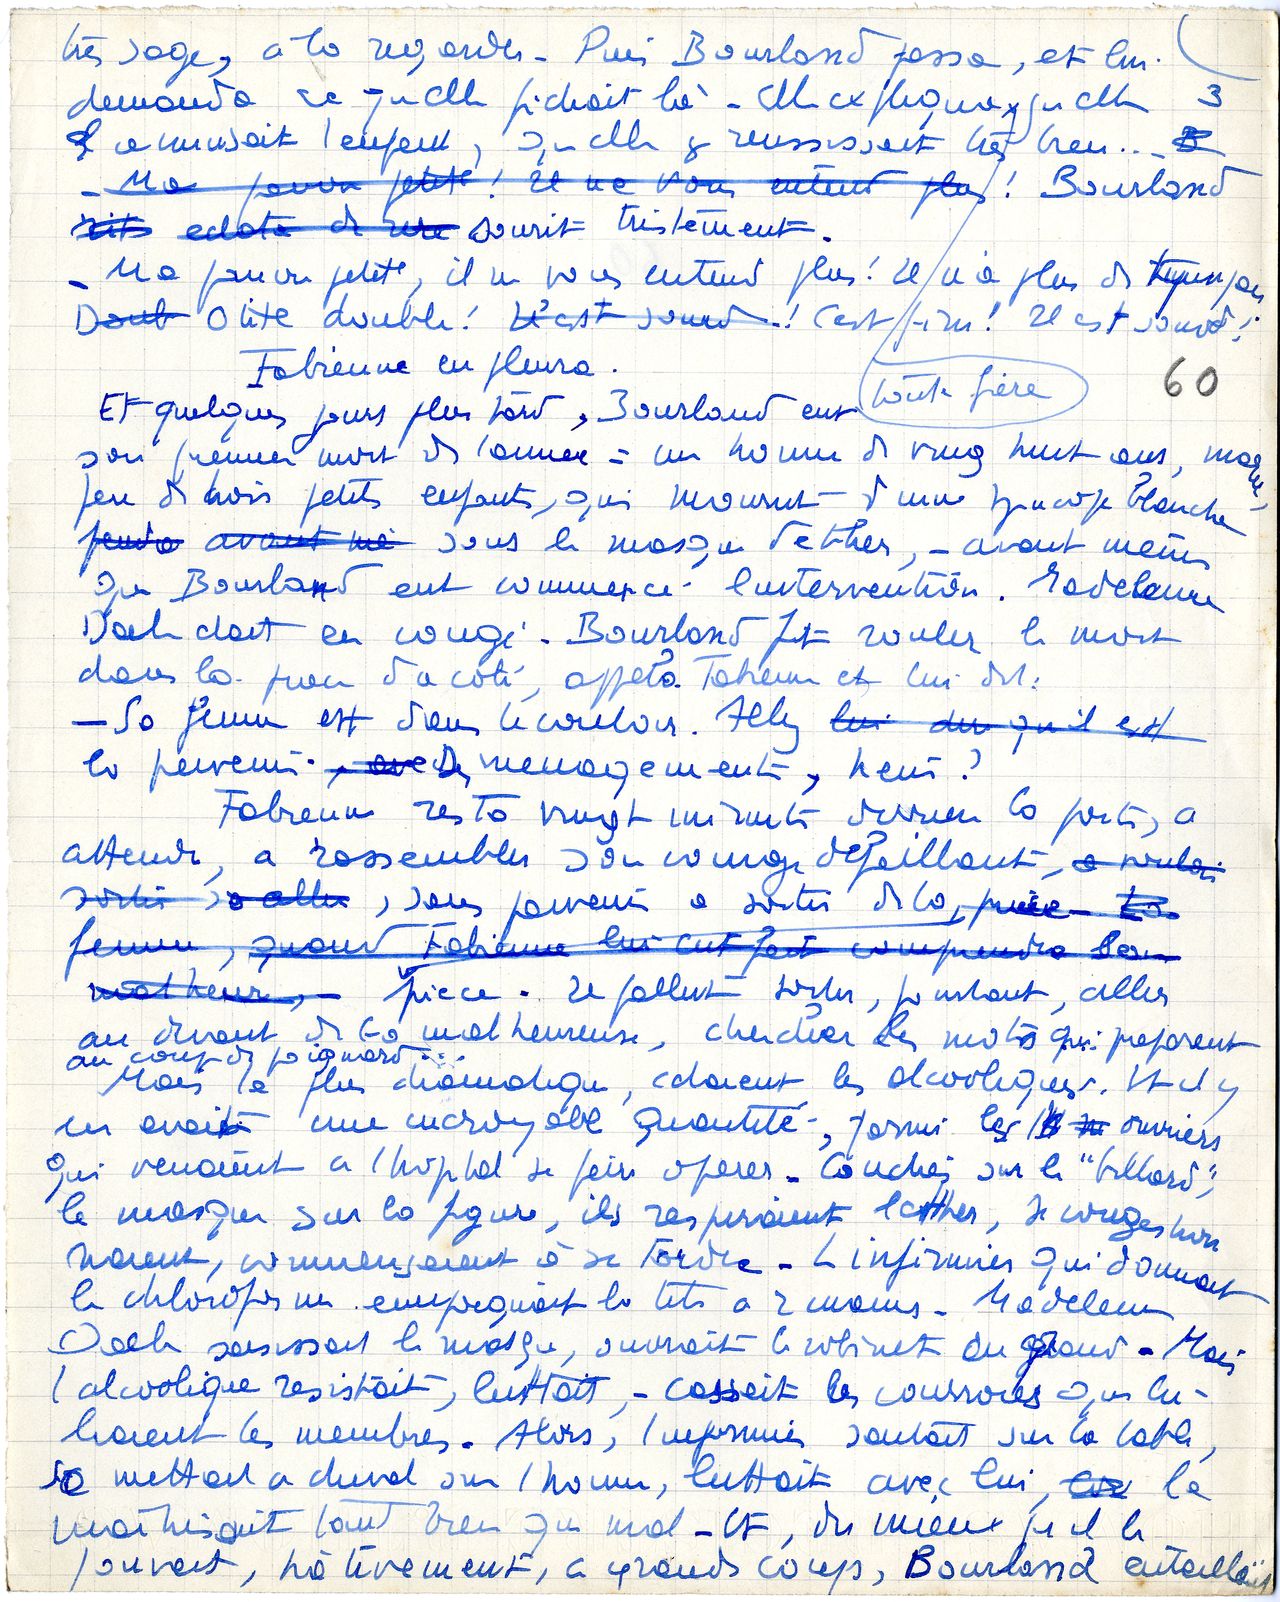 très sage, à la regarder - Puis Bourland passa, et lui
demanda ce qu'elle fichait là - Elle expliqua qu'elle 3
amusait l'enfant, qu'elle y reussissait très bien...
- Ma pauvre petite ! Il ne vous entend plus ! Bourland
rit eclata de rire sourit tristement.
- Ma pauvre petite, il ne vous entend plus ! Il n'a plus de tympans
Doub Otite double ! Il est sourd ! C'est fini ! Il est sourd !
Fabienne en pleura.
toute fière 60
Et quelques jours plus tard, Bourland eut
son premier mort de l'année - un homme de vingt huit ans,
père de trois petits enfants, qui mourut d'une syncope blanche
avant me sous le masque d'ether, - avant même
que Bourland eut commencé l'intervention. Madeleine
Daele etait en congé - Bourland fit rouler le mort
dans la pièce d'à côté, appela Fabienne et lui dit :
- Sa femme est dans le couloir. Allez lui dire qu'il est
la prevenir - , avec des menagements, hein ?
Fabienne resta vingt minutes derriere la porte, a
attendre, a rassembler son courage defaillant, a vouloir
sortir , sans parvenir a sortir de la, pièce - La
femme, quand Fabienne lui eut fait comprendre son
malheur, - pièce. Il fallut sortir, pourtant, aller
au devant de la malheureuse, chercher les mots qui preparent
au coup de poignard...
Mais le plus dramatique, c'etaient les alcooliques. Et il y
en avait une incroyable quantité, parmi les ouvriers
qui venaient a l'hopital se faire operer - Couchés sur le "billard",
le masque sur la figure, ils respiraient l'ether, se congestion
naient, commençaient à se tordre - L'infirmier qui donnait
le chloroforme empoignait la tete a 2 mains - Madeleine
Daele saisissait le masque, ouvrait le robinet en grand - Mais
l'alcoolique resistait, luttait, - cassait les courroies qui lui
liaient les membres. Alors, l'infirmier sautait sur la table,
se mettait a cheval sur l'homme, luttait avec lui, le
maitrisait tant bien que mal - Et, du mieux qu'il le
pouvait, hâtivement, a grands coups, Bourland entaillait